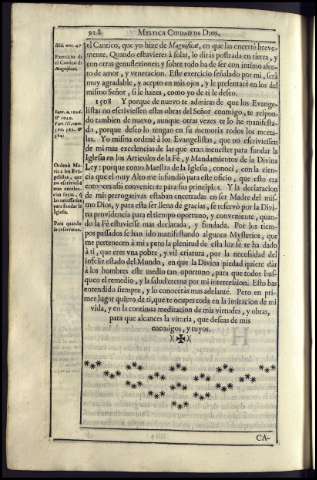 918 MYSTICA CIUDAD DE DIOS.
el Cantico, que yo hize de Magnificat, en que las encerrè breve-
mente. Quando estuvieres à solas, lo diràs postrada en tierra, y
con otras genuflexiones; y sobre todo ha de ser con intimo afec-
to de amor, y veneracion. Este exercicio señalado por mi, serà
muy agradable, y acepto en mis ojos, y le presentarè en los del
mismo Señor, si le hazes, como yo de ti le deseo.
1508 Y porque de nuevo te admiras de que los Evange-
listas no escriviessen estas obras del Señor conmigo, te respon-
do tambien de nuevo, aunque otras vezes te lo he manifesta-
do, porque deseo lo tengan en su memoria todos los morta-
les. Yo misma ordenè à los Evangelistas, que no escriviessen
de mis mas excelencias de las que eran menester para fundar la
Iglesia en los Articulos de la Fè, y Mandamientos de la Divina
Ley: porque como Maestra de la Iglesia, conocì, con la cien-
cia que el muy Alto me infundiò para este oficio, que esto era
entonces assi conveniente para sus principios. Y la declaracion
de mis prerrogativas estaban encerradas en ser Madre del mis-
mo Dios, y para esta ser llena de gracias; se reservò por la Divi-
na providencia para el tiempo oportuno, y conveniente, quan-
do la Fè estuviesse mas declarada, y fundada. Por los tiem-
pos passados se han ido manifestando algunos Mysterios, que
me pertenecen à mi; pero la plenitud de esta luz se te ha dado
à ti, que eres vna pobre, y vil criatura, por la necessidad del
infeliz estado del Mundo, en que la Divina piedad quiere dar
à los hombres este medio tan oportuno, para que todos bus-
quen el remedio, y la salud eterna por mi intercession. Esto has
entendido siempre, y lo conoceràs mas adelante. Pero en pri-
mer lugar quiero de ti, que te ocupes toda en la imitacion de mi
vida, y en la continua meditacion de mis virtudes, y obras,
para que alcances la vitoria, que deseas de mis
enemigos, y tuyos.
Exercicio de
el Cantico de
Magnificat.
Ordenò Ma-
ria à los Evã-
gelistas, que
no escriviessen
Iglesia.
Para quando
se reservaron.
CA-